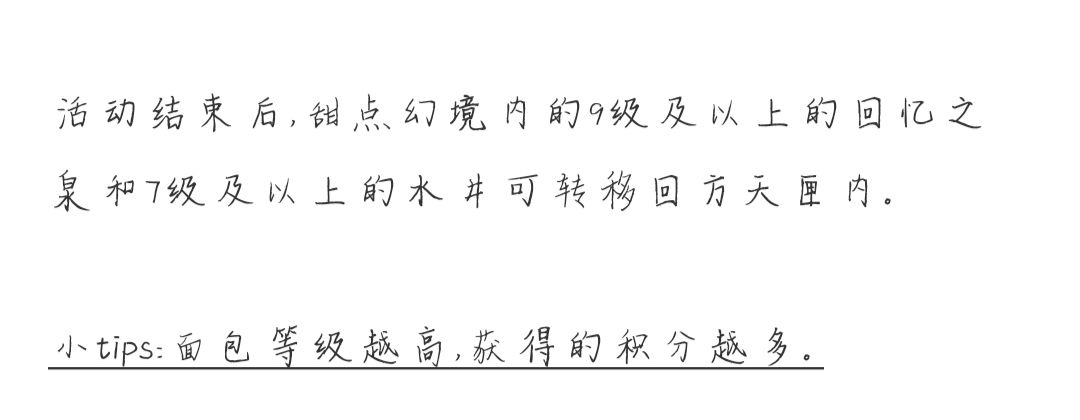 活动结束后,甜点幻境内的9级及以上的回忆之
泉和7级及以上的水井可转移回方天匣内。
小tips:面包等级越高,获得的积分越多。